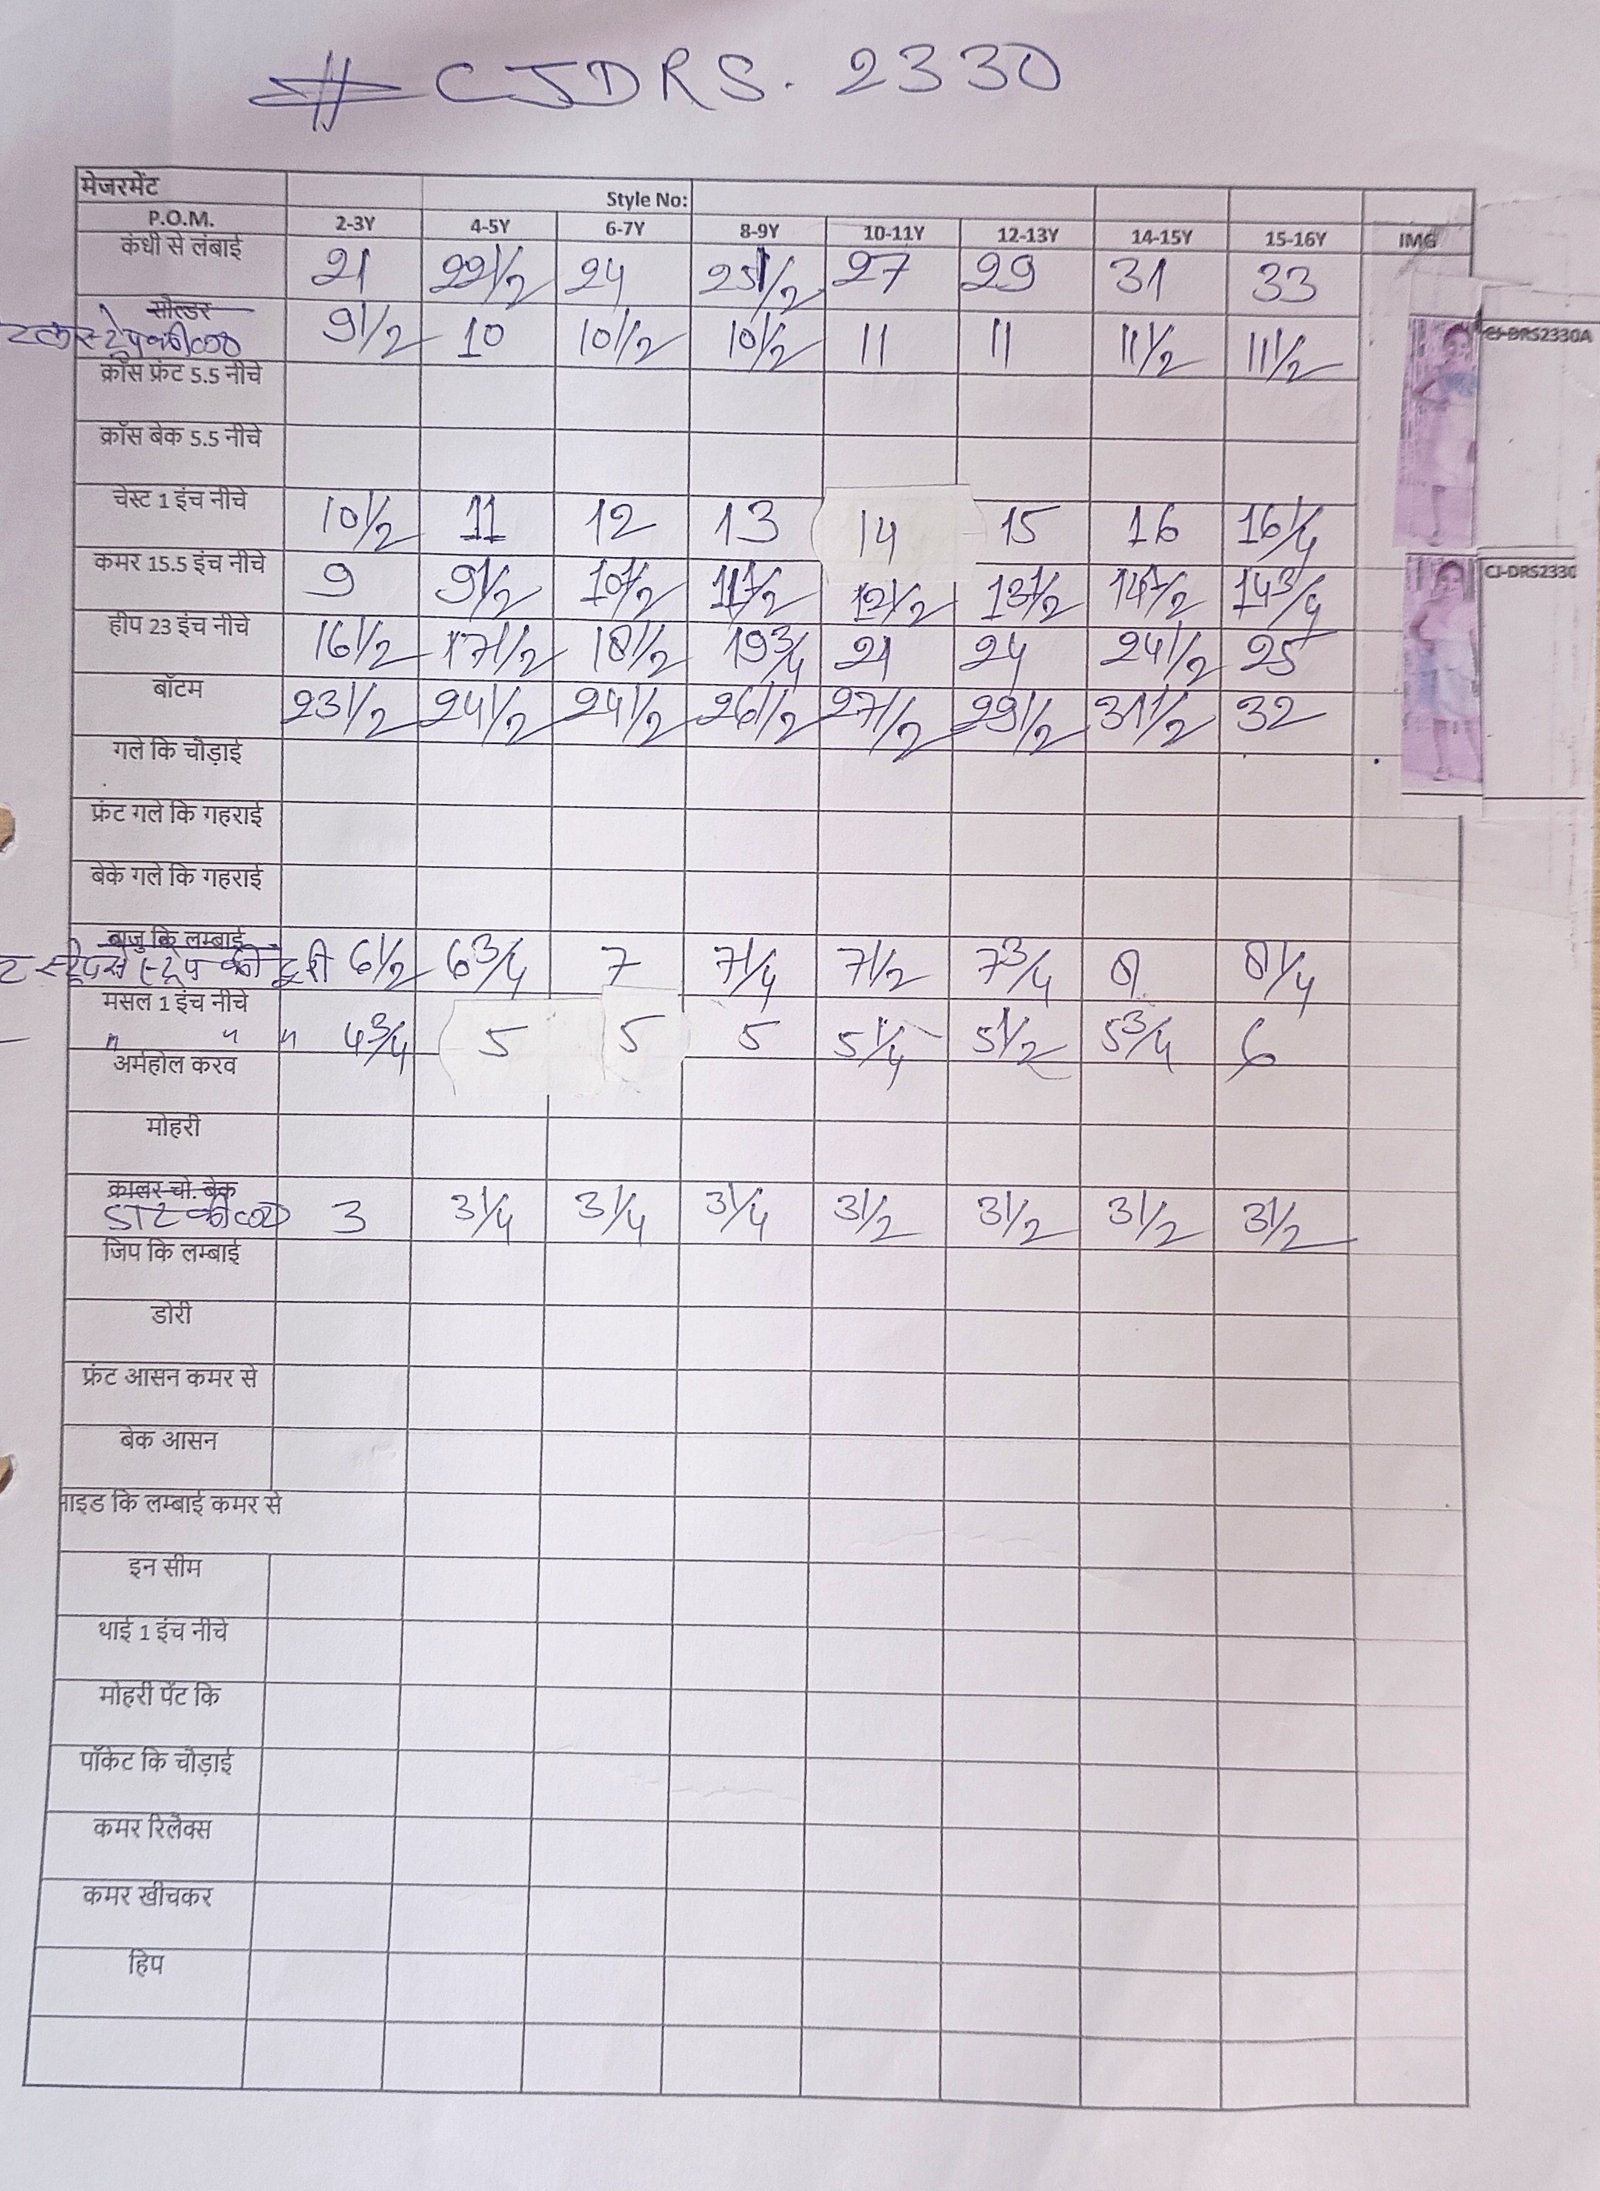 # CJDRS. 2330
मेजरमेंट Style No:
P.O.M. 2-3Y 4-5Y 6-7Y 8-9Y 10-11Y 12-13Y 14-15Y 15-16Y IMG
कंधी से लंबाई 21 22 1/2 24 25 1/2 27 29 31 33
सोल्डर
9 1/2 10 10 1/2 10 1/2 11 11 11 1/2 11 1/2
CJ-DRS2330A
क्रॉस फ्रंट 5.5 नीचे
क्रॉस बेक 5.5 नीचे
चेस्ट 1 इंच नीचे 10 1/2 11 12 13 14 15 16 16 1/4
कमर 15.5 इंच नीचे 9 9 1/2 10 1/2 11 1/2 12 1/2 13 1/2 14 1/2 14 3/4
CJ-DRS2330
हीप 23 इंच नीचे 16 1/2 17 1/2 18 1/2 19 3/4 21 24 24 1/2 25
बॉटम 23 1/2 24 1/2 24 1/2 26 1/2 27 1/2 29 1/2 31 1/2 32
गले कि चोड़ाई
फ्रंट गले कि गहराई
बेके गले कि गहराई
बाजु कि लम्बाई
स्ट्रेप से स्ट्रेप की दूरी 6 1/2 6 3/4 7 7 1/4 7 1/2 7 3/4 8 8 1/4
मसल 1 इंच नीचे
" " " 4 3/4 5 5 5 5 1/4 5 1/2 5 3/4 6
अर्महोल करव
मोहरी
क्रालर चो. बेक
डाट की 3 3 1/4 3 1/4 3 1/4 3 1/2 3 1/2 3 1/2 3 1/2
जिप कि लम्बाई
डोरी
फ्रंट आसन कमर से
बेक आसन
साइड कि लम्बाई कमर से
इन सीम
थाई 1 इंच नीचे
मोहरी पेंट कि
पॉकेट कि चौड़ाई
कमर रिलैक्स
कमर खीचकर
हिप